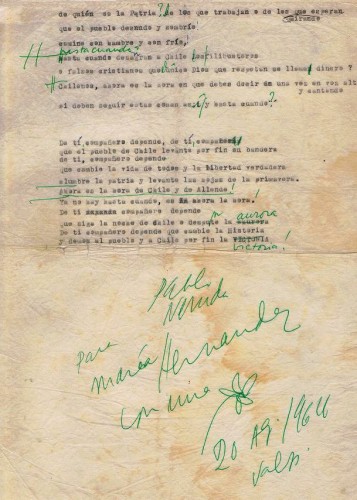 de quién es la Patria? de los que trabajan o de los que esperan
mirando
que el pueblo desnudo y sombrío
camine con hambre y con frío,
hasta cuándo?
hasta cuando desangran a Chile los filibusteros
o falsos cristianos que Dios que respetan se llama dinero?
Chilenos, ahora es la hora en que debes decir de una vez en voz alta
y cantando
si deben seguir estas cosas así y hasta cuando?
De tí, compañero depende, de tí, compañero
que el pueblo de Chile levante por fin su bandera
de ti, compañero depende
que cambie la vida de todos y la libertad verdadera
alumbre la patria y levante las espigas de la primavera.
Ahora es la hora de Chile y de Allende!
Ya no hay hasta cuando, es ahora la hora!
De ti compañero depende
que siga la noche de Chile o despunte la aurora
De ti compañero depende que cambie la Historia
y demos al pueblo y a Chile por fin la victoria!
Pablo
Neruda
para
María Hernandez
con una
20 Ag. 1964
Valp.